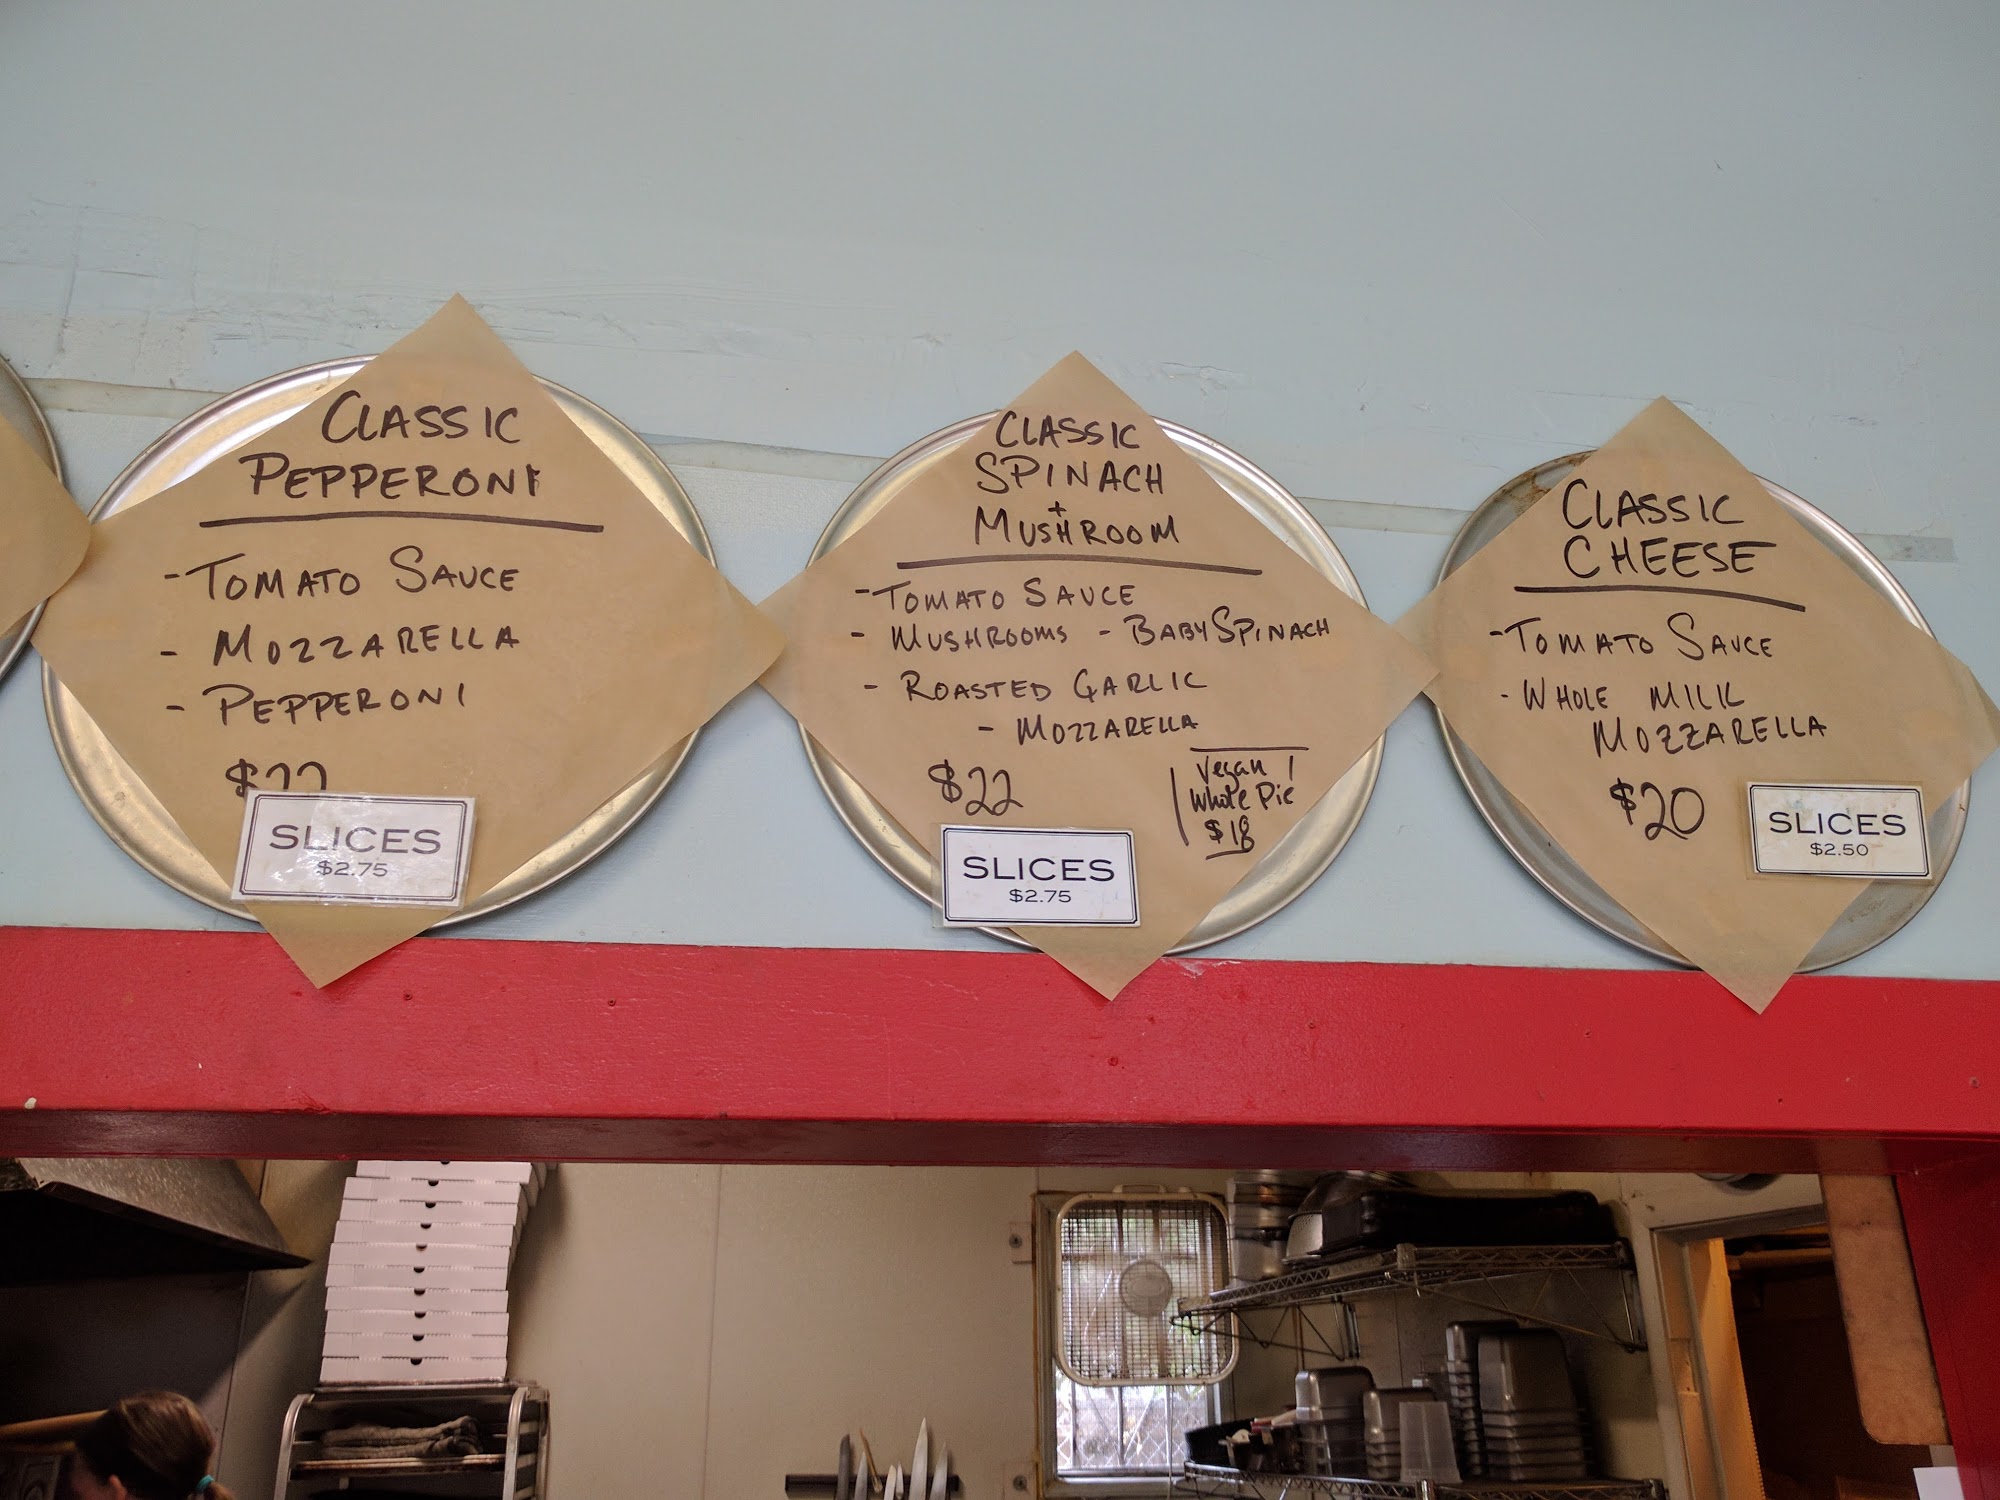 CLASSIC
PEPPERONI
- TOMATO SAUCE
- MOZZARELLA
- PEPPERONI
$22
SLICES
$2.75
CLASSIC
SPINACH
+
MUSHROOM
- TOMATO SAUCE
- MUSHROOMS - BABY SPINACH
- ROASTED GARLIC
- MOZZARELLA
$22
Vegan
Whole Pie
$18
SLICES
$2.75
CLASSIC
CHEESE
- TOMATO SAUCE
- WHOLE MILK
MOZZARELLA
$20
SLICES
$2.50